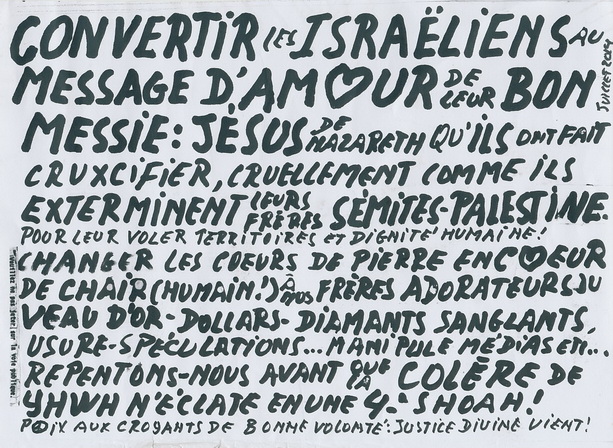 CONVERTIR LES ISRAËLIENS AU
MESSAGE D'AM♡UR DE LEUR BON
MESSIE: JÉSUS DE NAZARETH QU'ILS ONT FAIT
CRUXCIFIER, CRUELLEMENT COMME ILS
EXTERMINENT LEURS FRÈRES SÉMITES-PALESTINE.
POUR LEUR VOLER TERRITOIRES ET DIGNITÉ HUMAINE!
CHANGER LES COEURS DE PIERRE ENC♡EUR
DE CHAIR (HUMAIN!) À NOS FRÈRES ADORATEURS DU
VEAU D'OR-DOLLARS-DIAMANTS SANGLANTS,
USURE-SPÉCULATIONS... MANIPULE MÉDIAS ETC...
REPENTONS-NOUS AVANT QUE LA COLÈRE DE
YHWH N'ÉCLATE EN UNE 4.e SHOAH!
PAIX AUX CROYANTS DE BONNE VOLONTÉ: JUSTICE DIVINE VIENT!